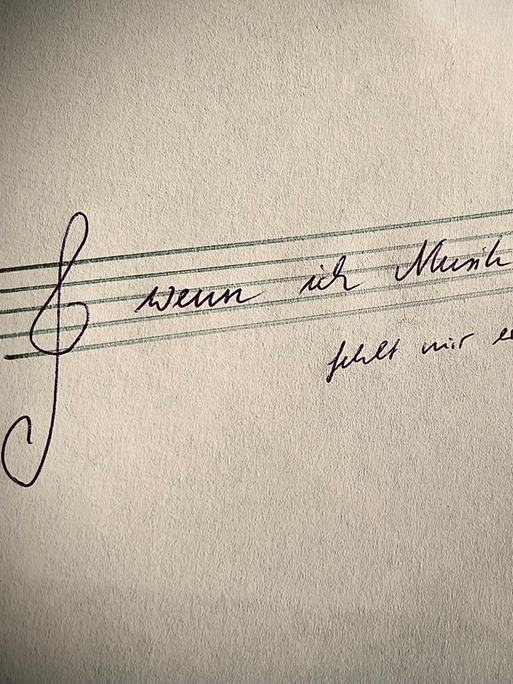 wenn ich Musik
fehlt mir